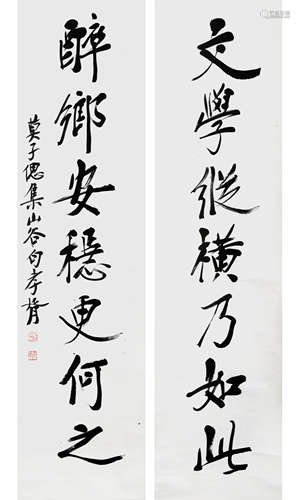 文學縱橫乃如此
醉鄉安穩更何之
莫子偲集山谷句 孝胥